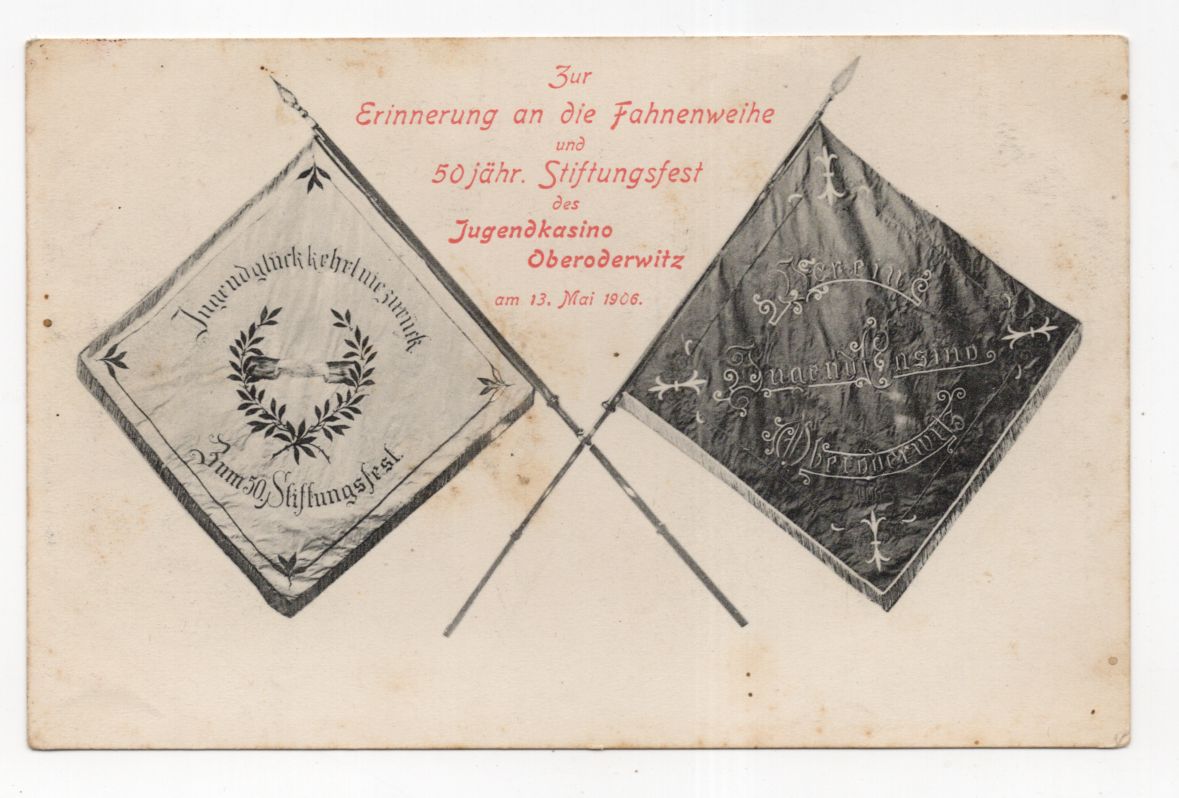 Zur
Erinnerung an die Fahnenweihe
und
50jähr. Stiftungsfest
des
Jugendkasino
Oberoderwitz
am 13. Mai 1906.
Jugendglück kehrt nie zurück.
Zum 50. Stiftungsfest.
Verein
Jugend Casino
Oberoderwitz